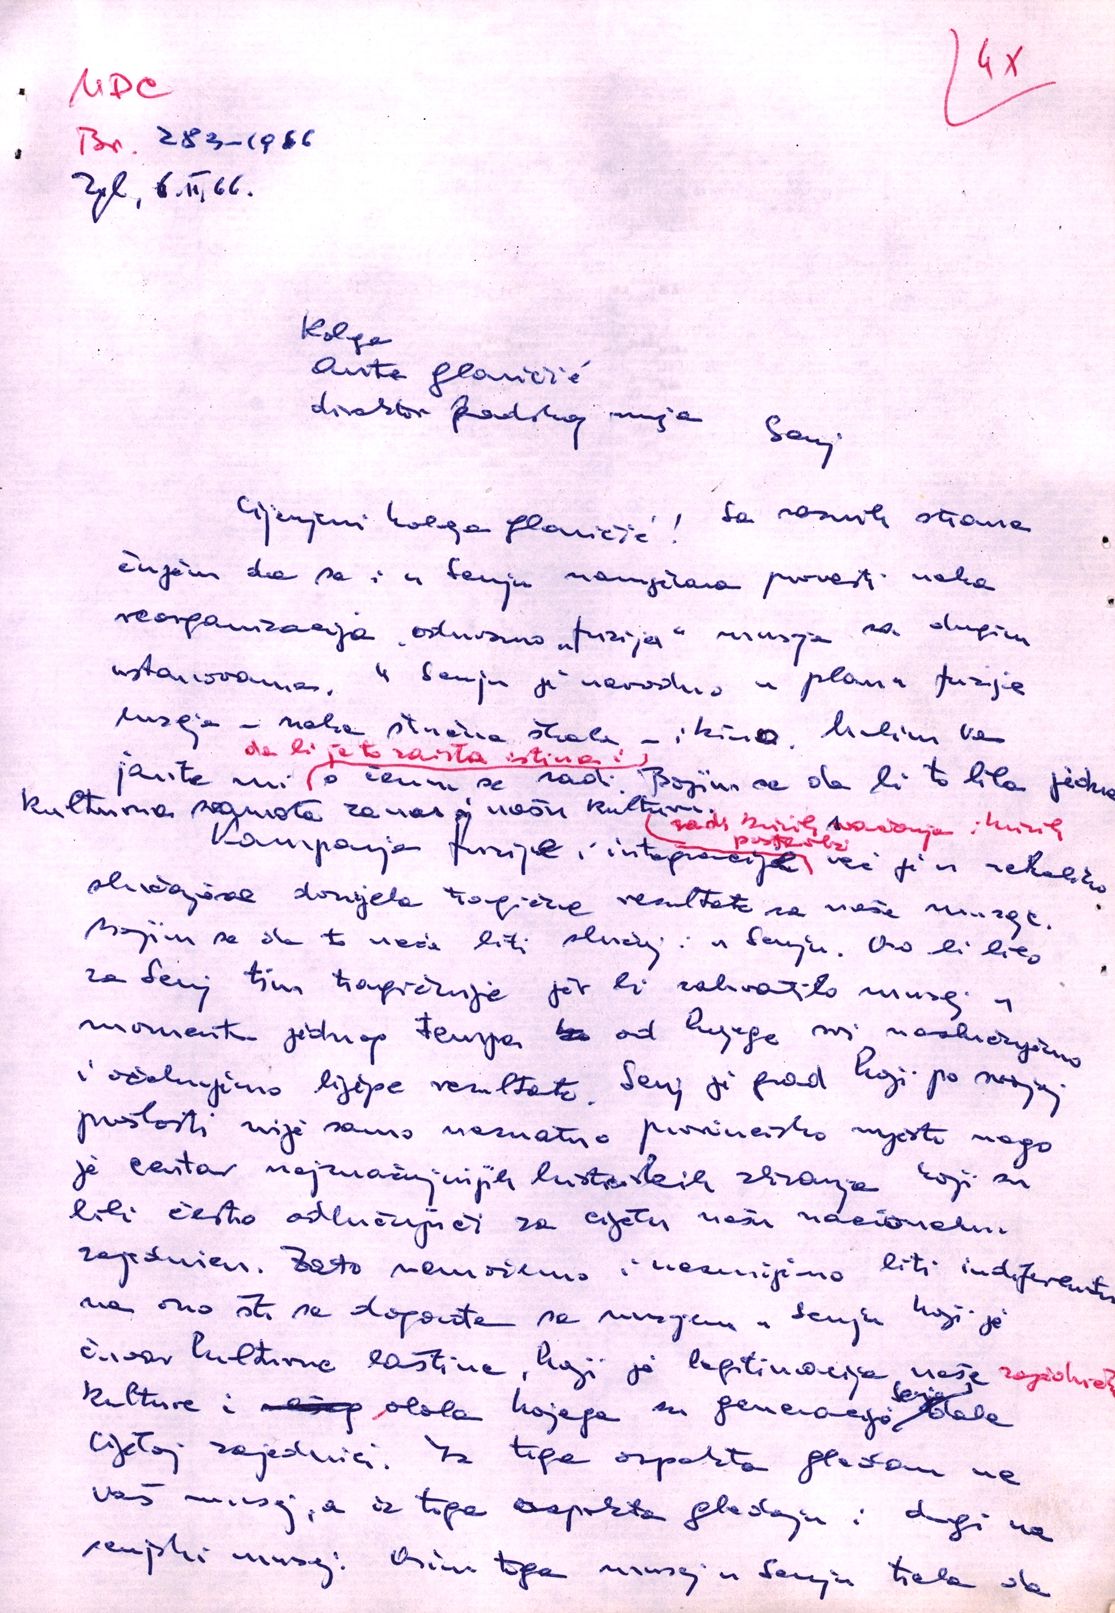 4 X
MDC
Br. 283-1966
Zgb, 6.II,66.
Kolega
Ante Glavičić
direktor gradskog muzeja Senj
Cijenjeni kolega Glavičić! Sa raznih strana
čujem da se i u Senju namjerava provesti neka
reorganizacija, odnosno „fuzija“ muzeja sa drugim
ustanovama. U Senju je navodno u planu fuzija
muzeja – neka stručna škola – i kino. Molim Vas
da li je to zaista istina i
javite mi o čemu se radi. Bojim se da bi to bila jedna
kulturna sramota za nas i našu kulturu.
radi krivih shvaćanja i krivih
postavki
Kampanja fuzije i integracije već je u nekoliko
slučajeva donijela tragične rezultate za naše muzeje.
Bojim se da to neće biti slučaj i u Senju. Ovo bi bilo
za Senj tim tragičnije jer bi zahvatilo muzej u
momentu jednog tempa od kojega svi naslućujemo
i očekujemo lijepe rezultate. Senj je grad koji po svojoj
prošlosti nije samo neznatno provincisko mjesto nego
je centar najznačajnijih historiskih zbivanja koji su
bili često odlučujući za cijelu našu nacionalnu
zajednicu. Zato nemožemo i nesmijemo biti indiferentni
na ono što se događa sa muzejem u Senju koji je
čuvar kulturne baštine, koji je legitimacija naše zajedničke
kulture i obola kojega su generacije Senja dale
cijeloj zajednici. Iz toga aspekta gledam na
vaš muzej, a iz toga aspekta gledaju i drugi na
senjski muzej. Osim toga muzej u Senju treba da